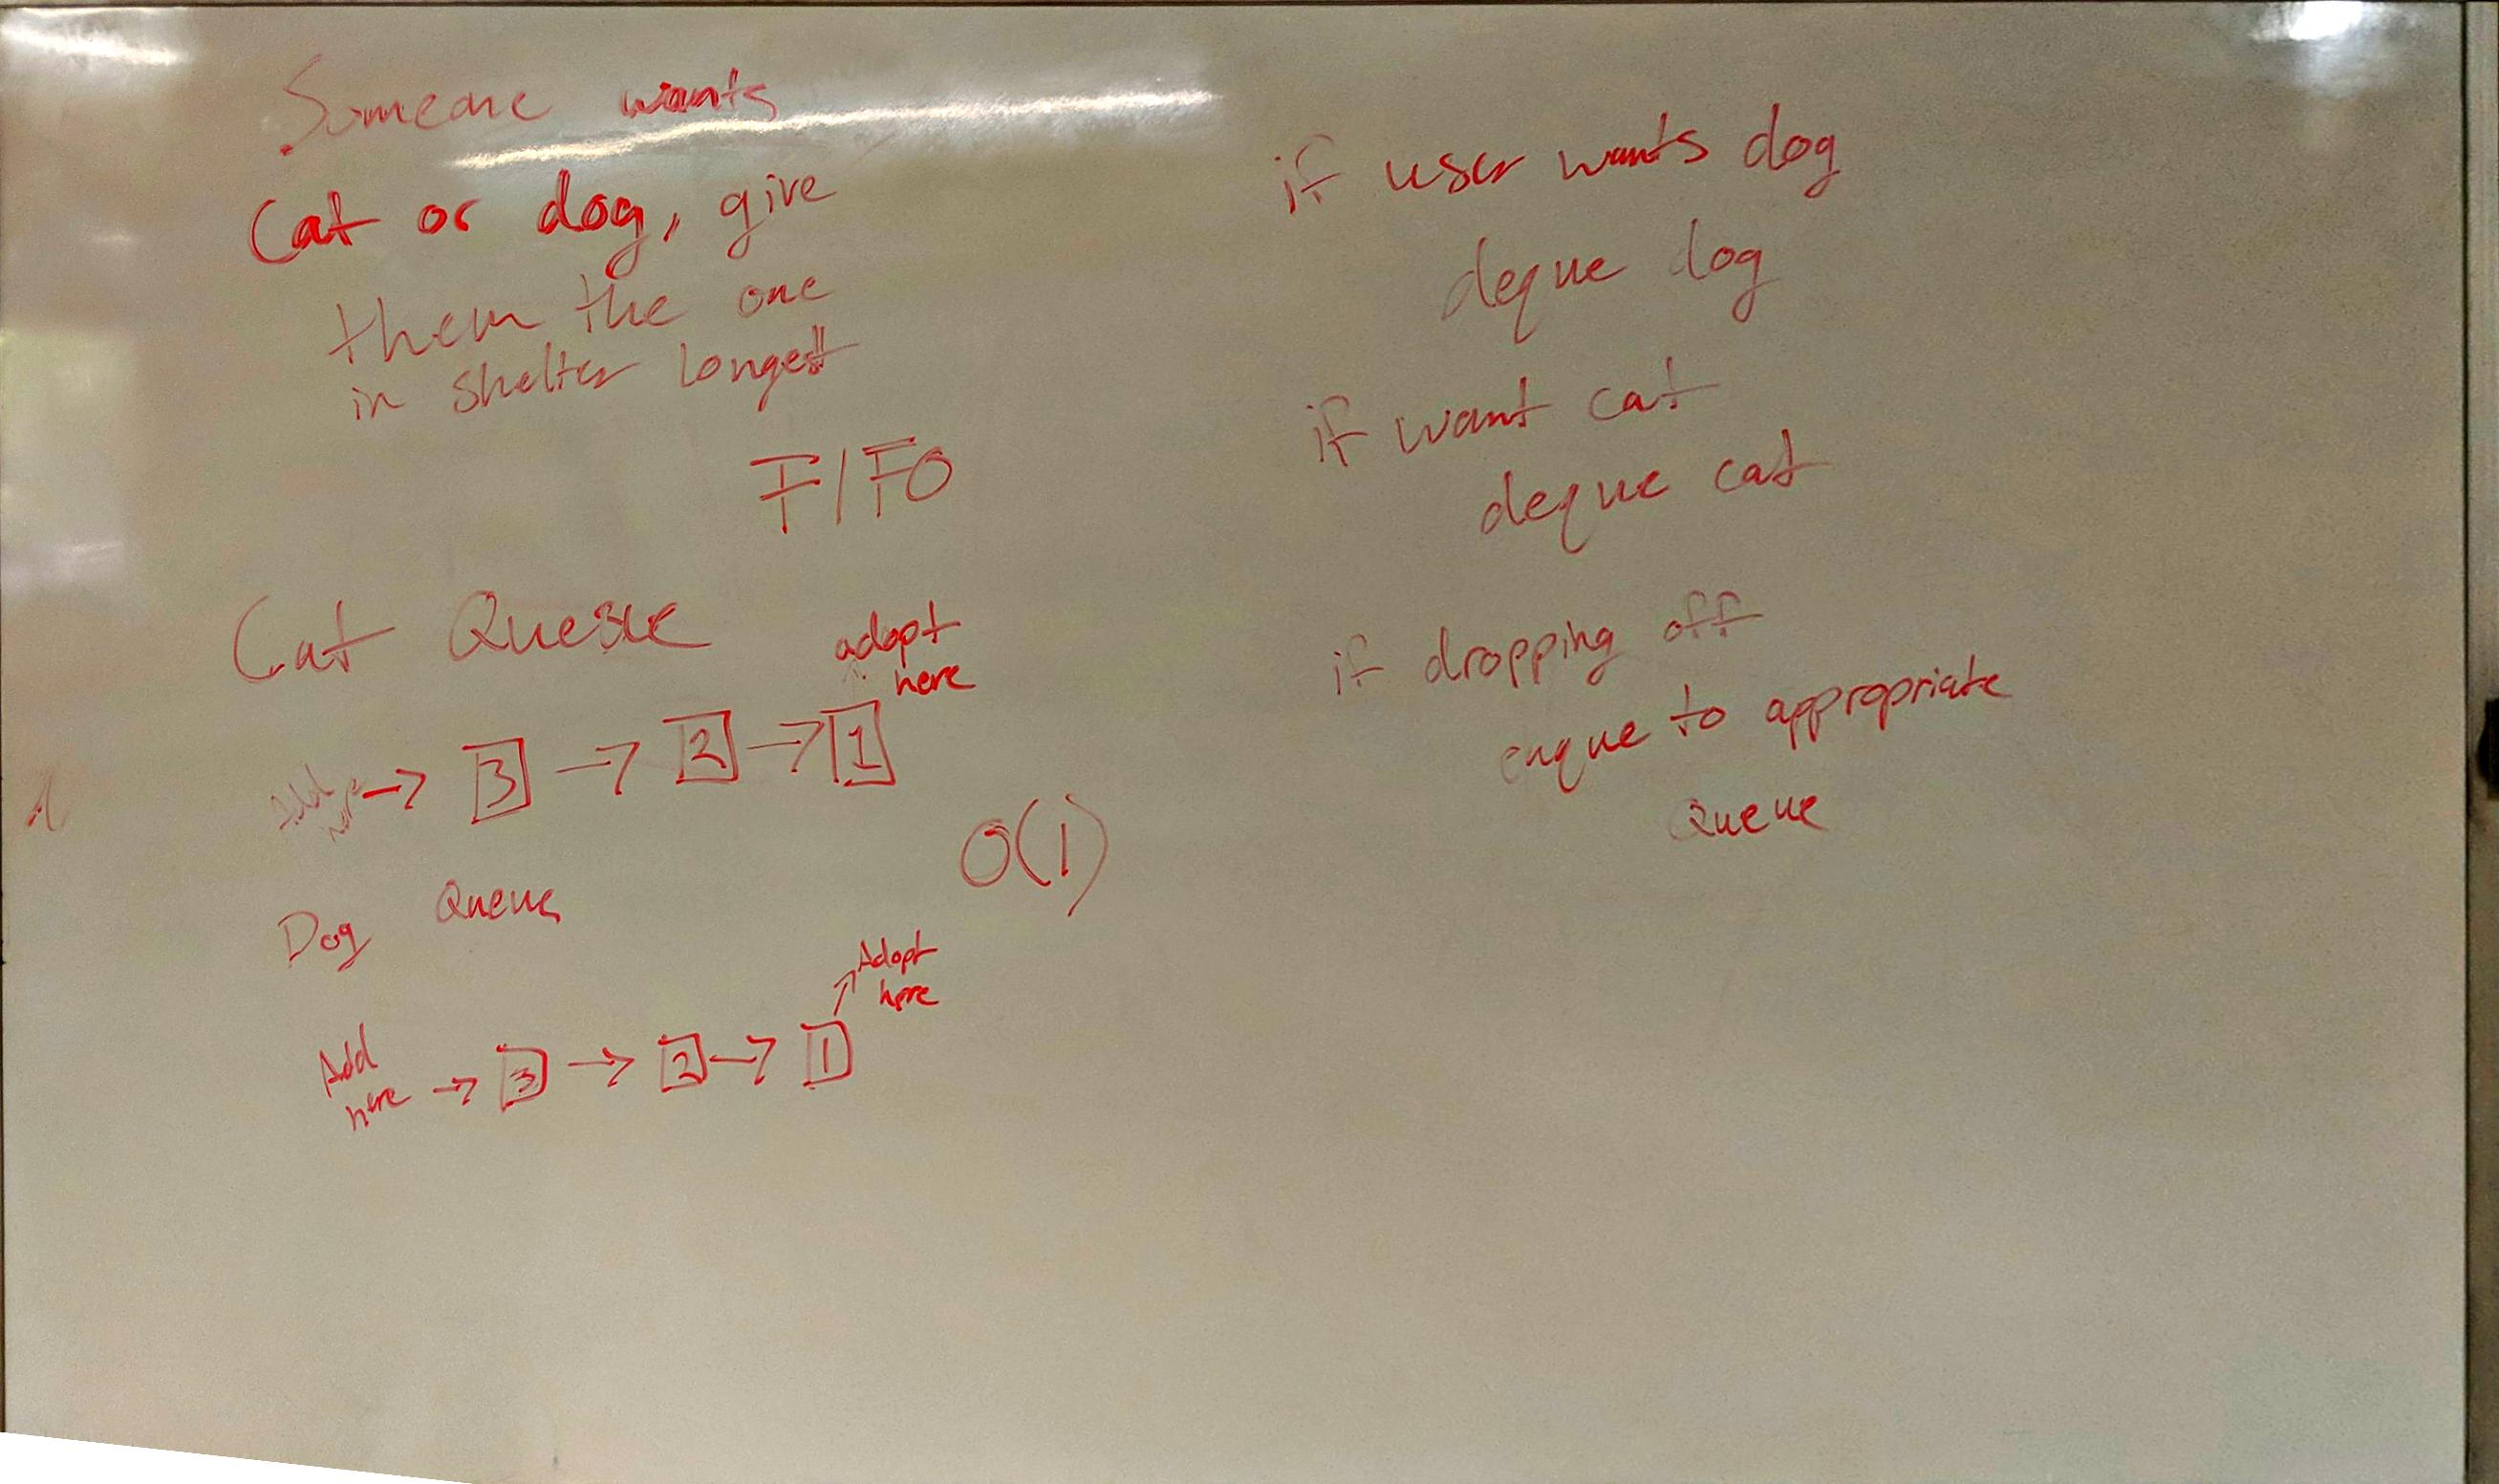 Someone wants
Cat or dog, give
them the one
in shelter longest
FIFO
Cat Queue
adopt
here
Add
here → 3 → 2 → 1
O(1)
Dog Queue
Adopt
here
Add
here → 3 → 2 → 1
if user wants dog
deque dog
if want cat
deque cat
if dropping off
enque to appropriate
Queue